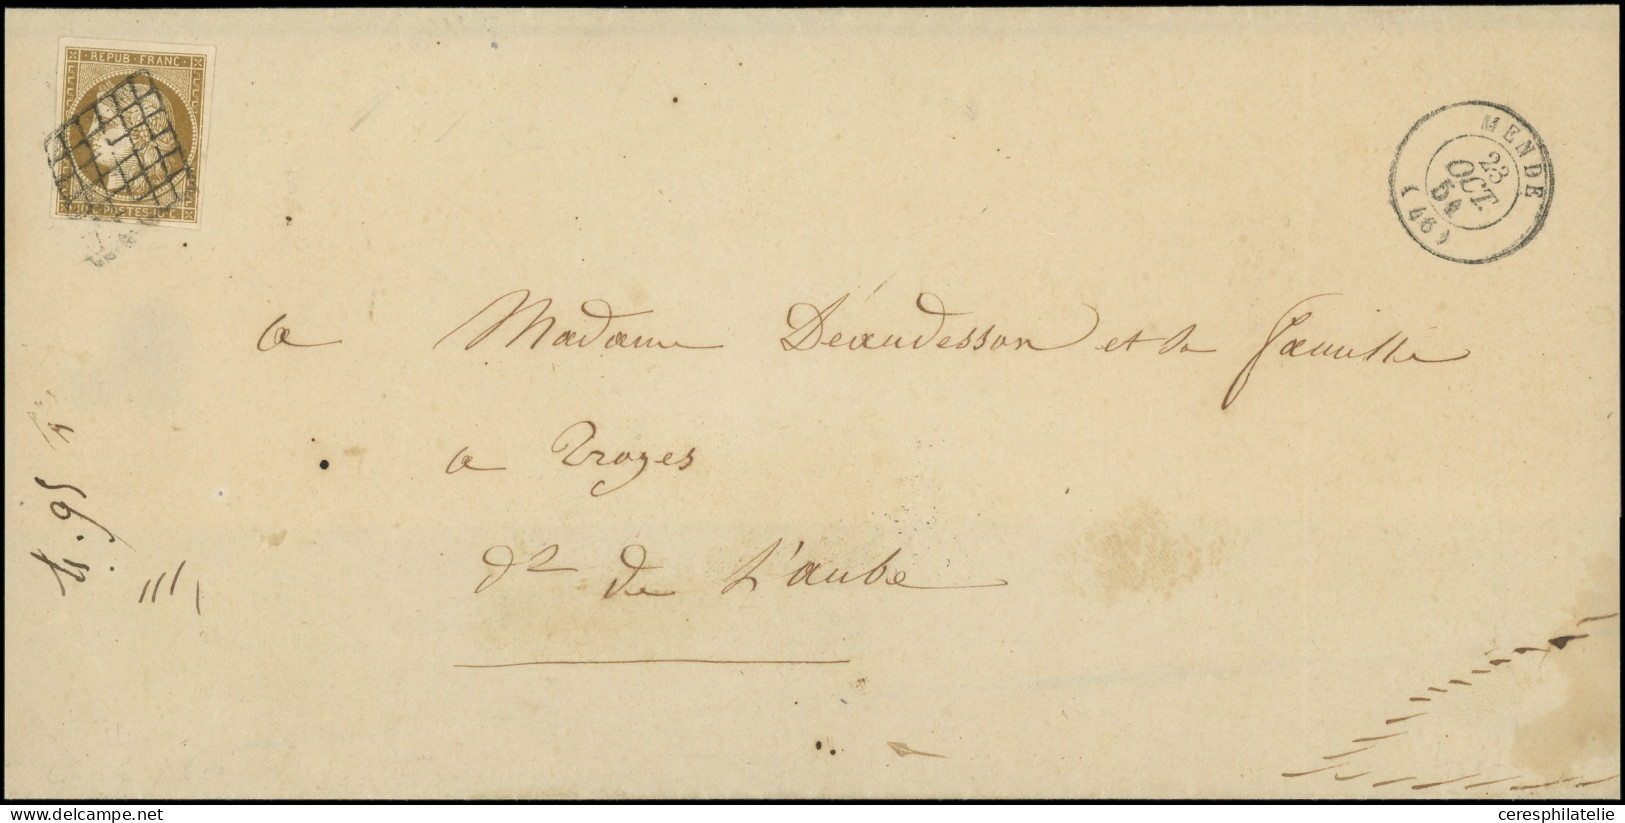 REPUB·FRANC·
10·C·POSTES·10·C·
MENDE
23
OCT.
51
(46)
a Madame Déaudesson et sa famille
a Troyes
dt de L'aube
ceresphilatelie